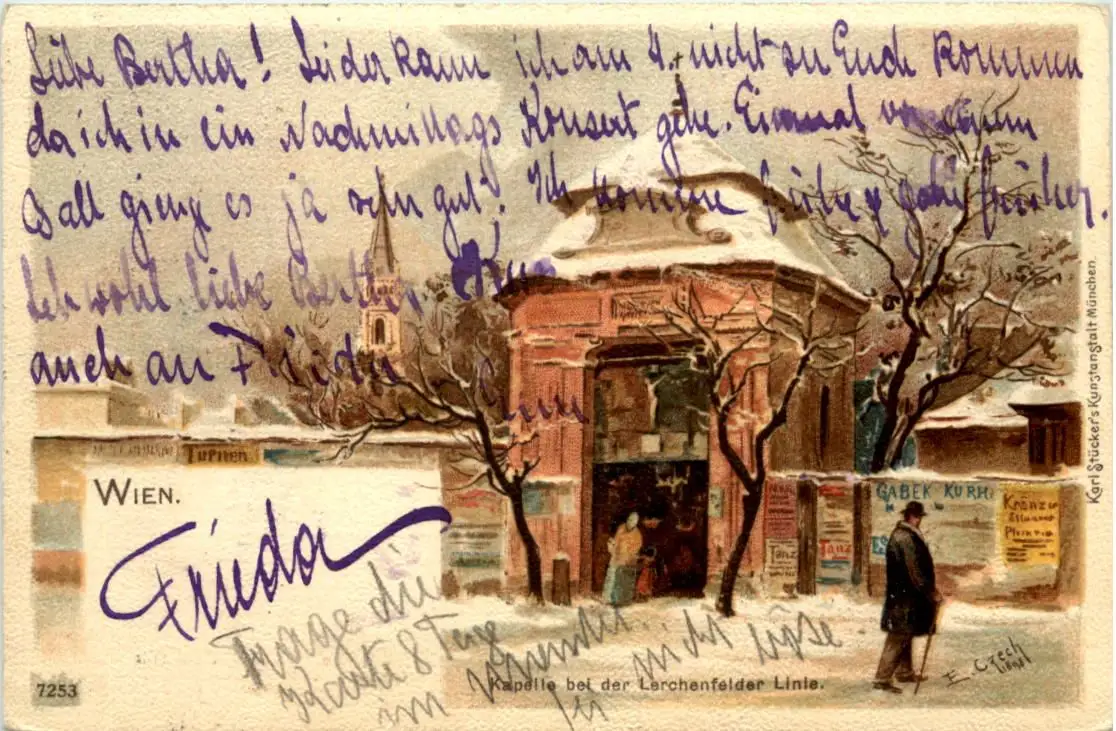 Liebe Bertha! Leider kann ich am 4. nicht zu Euch kommen
da ich in ein Nachmittags Konzert gehe. Einmal vor einem
Ball gieng es ja sehr gut! Ich komme früher gehe früher.
Lebe wohl liebe Bertha.
auch an Frieda
WIEN.
Frieda
Trage die
Karte 8 Tage
im
nicht böse
TUPITEN
GABEK KURH
Tanz
Tanz
Kränze
E. Czech
7253
Kapelle bei der Lerchenfelder Linie.
Karl Stücker's Kunstanstalt München.